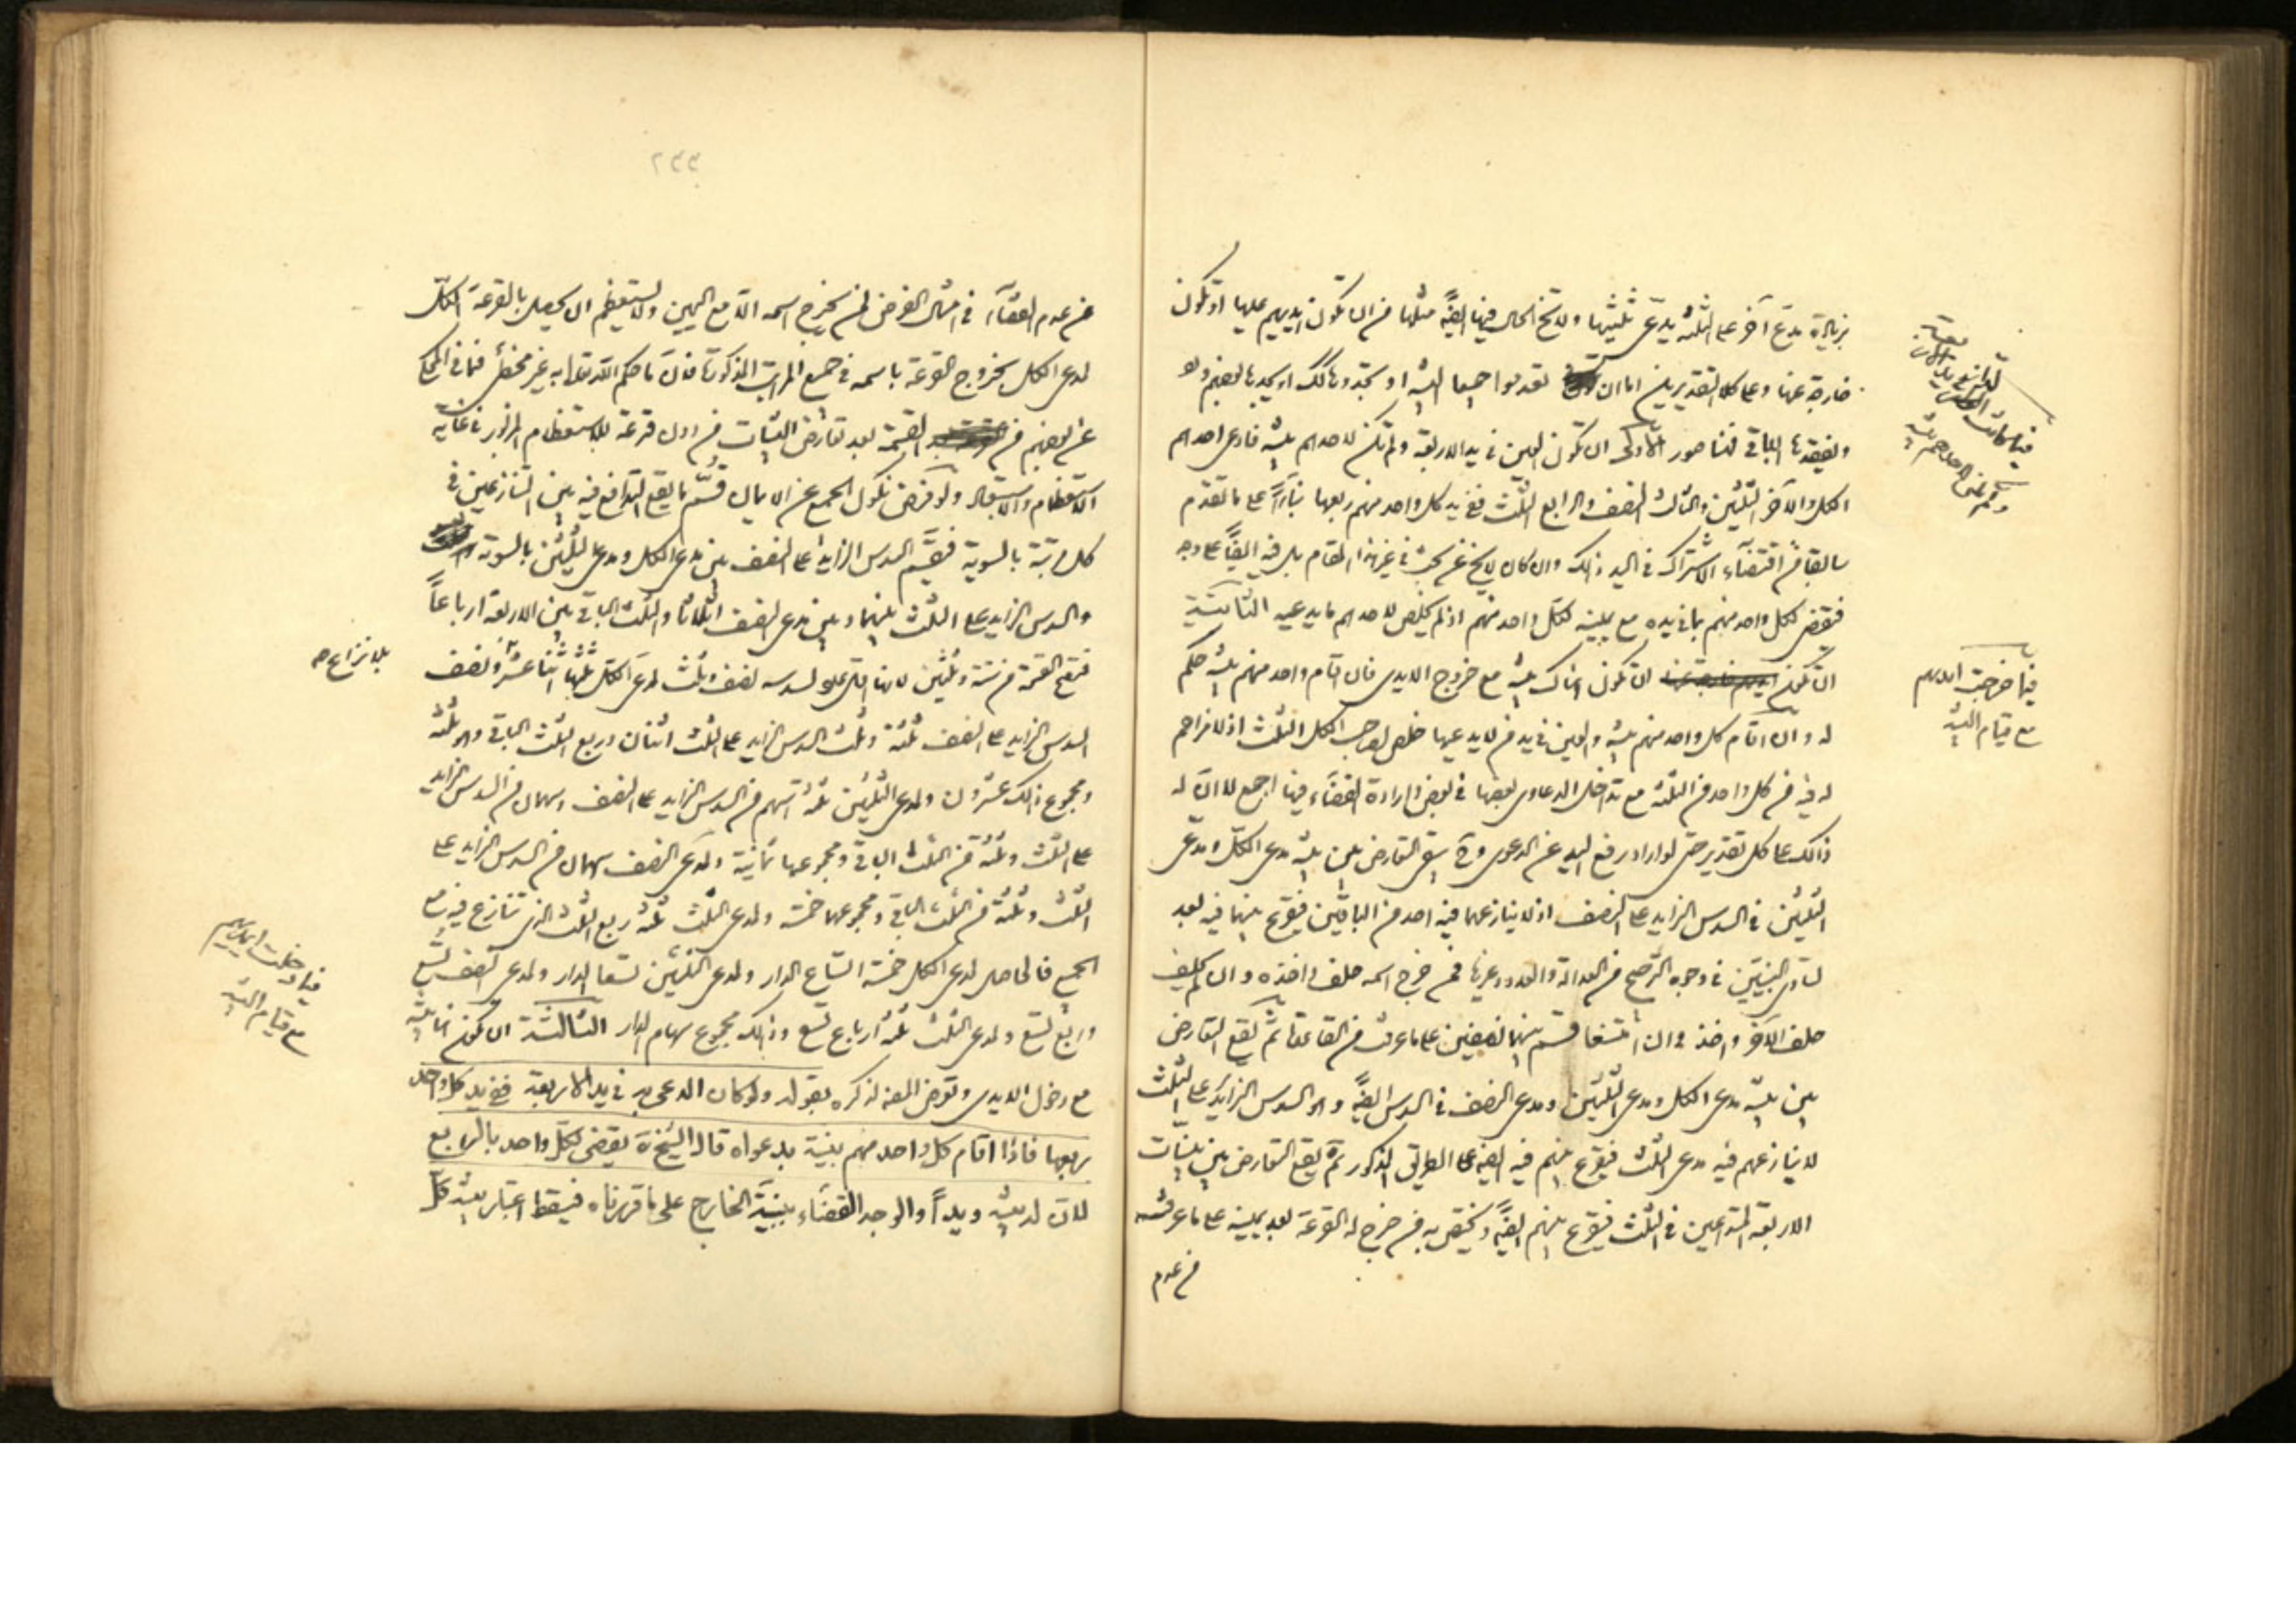 بزيادة مدّع آخر على الثلثة يدعى ثلثيها ولا تخ الحال فيها ايضًا مثلها من ان تكون ايديهم عليها او تكون
خارجة عنها وعلى كلا التقديرين اما ان تقدموا جميعا البينة او
ويفقدها الباقي فهنا صور الأولى ان تكون العين في يد الاربعة ولم تكن لاحدهم بينة فادعى احدهم
الكل والآخر الثلثين والثالث النصف والرابع الثلث ففي يد كل واحد منهم ربعها بناءً على ما تقدم
سابقا من اقتضاء الاشتراك في اليد ذلك وان كان لا يخ عن بحث في غير هذا المقام بل فيه ايضًا على وجه
فيقضى لكل واحد منهم بما في يده مع يمينه لكل واحد منهم اذ لم يخلص لاحدهم ما يدعيه الثانية
ان تكون هناك بينة مع خروج الايدى فان اقام واحد منهم بينة حكم
له وان اقام كل واحد منهم بينة والعين في يد من لا يدعيها خلص لصاحب الكل الثلث اذ لا مزاحم
له فيه من كل واحد من الثلثة مع تداخل الدعاوى بعضها في بعض وارادة القضاء فيها اجمع لا ان له
ذلك على كل تقدير حتى لو اراد رفع اليد عن الدعوى وح يبقى التعارض بين بينة مدعى الكل ومدعى
الثلثين في السدس الزايد على النصف اذ لا ينازعهما فيه احد من الباقين فيقرع بينهما فيه بعد
تساوى البينتين في وجوه الترجيح من العدالة والعدد وغيرها فمن خرج اسمه حلف واخذه وان لم يحلف
حلف الآخر واخذ وان امتنعا قسم بينهما نصفين على ما عرفت من القاعدة ثم يقع التعارض
بين بينة مدعى الكل ومدعى الثلثين ومدعى النصف في السدس ايضًا وهو السدس الزايد على الثلث
لا ينازعهم فيه مدعى الثلث فيقرع بينهم فيه ايضا على الطريق المذكور ثم يقع التعارض بين بينات
الاربعة المتداعيين في الثلث فيقرع بينهم ايضًا ويختص به من خرج له القرعة بعد يمينه على ما عرفته
من عدم
فيما خرجت ايديهم
مع قيام البينة
٢٣٣
من عدم القضاء في امثال الفرض لمن يخرج اسمه الّا مع اليمين ولا يستعظم ان يحصل بالقرعة الكل
لمدعى الكل بخروج القرعة باسمه في جميع المراتب المذكورة فانّ ما حكم الله تعالى به غير مخطئ فما في المحكى
عن بعضهم من القسمة بعد تعارض البينات من دون قرعة للاستعظام المزبور في غاية
الاستعظام والاستبعاد ولو فرض نكول الجميع عن الايمان قسم ما يقع التدافع فيه بين المتنازعين في
كل مرتبة بالسوية فيقسم السدس الزايد على النصف بين مدعى الكل ومدعى الثلثين بالسوية
والسدس الزايد على الثلث بينهما وبين مدعى النصف اثلاثا والثلث الباقي بين الاربعة ارباعاً
فتصح القسمة من ستة وثلثين لانها لسدسه نصف وثلث لمدعى الكل ثلثها اثنا عشر ونصف
بلا نزاع صح
السدس الزايد على النصف ثلثة وثلث السدس الزايد على الثلث اثنان وربع الثلث الباقي وهو ثلثة
ومجموع ذلك عشرون ولمدعى الثلثين ثلثة اسهم من السدس الزايد على النصف وسهمان من السدس الزايد
على الثلث وثلثة من الثلث الباقي ومجموعها ثمانية ولمدعى النصف سهمان من السدس الزايد على
الثلث وثلثة من الثلث الباقي ومجموعها خمسة ولمدعى الثلث ثلثة ربع الثلث الذى تنازع فيه مع
الجميع فالحاصل لمدعى الكل خمسة اتساع الدار ولمدعى الثلثين تسعا الدار ولمدعى النصف تسع
وربع تسع ولمدعى الثلث ثلثة ارباع تسع وذلك مجموع سهام الدار الثالثة ان تكون لها بينة
فيما دخلت ايديهم
مع قيام البينة
مع دخول الايدى وتعرض المصنف لذكره بقوله ولو كان المدعى به في يد الاربعة ففي يد كل واحد
ربعها فاذا اقام كل واحد منهم بينة بدعواه قال الشيخ ره يقضى لكل واحد بالربع
لان له بينة ويداً والوجه القضاء ببينة الخارج على ما قررناه فيسقط اعتبار بينة كل